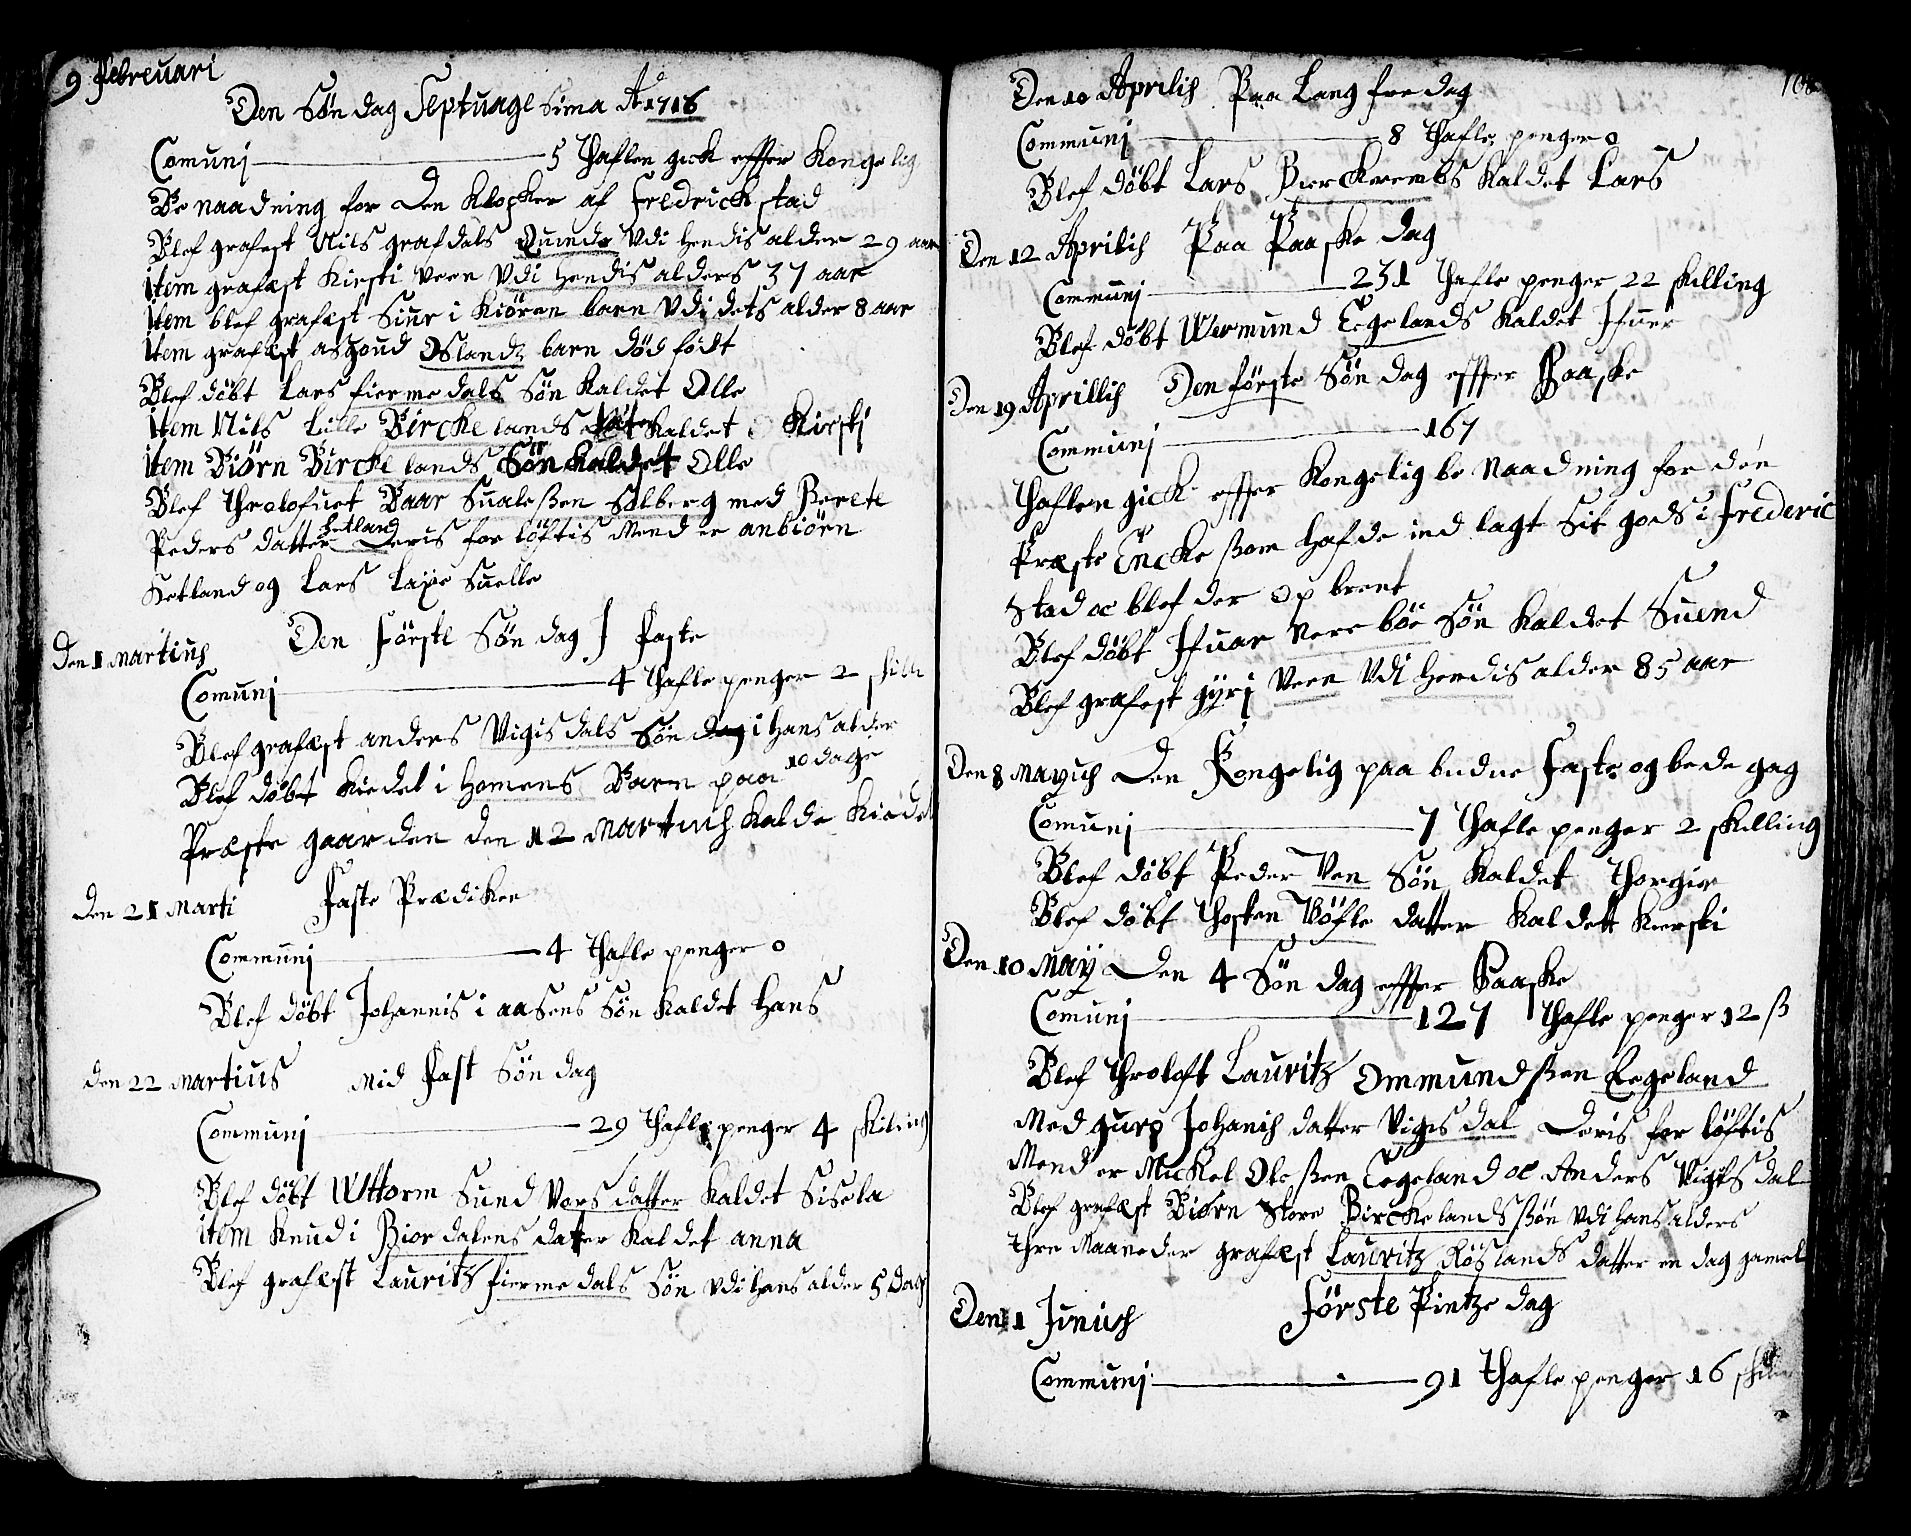 9 Februari
Den Søn dag Septuage Sima Ao 1716
Comunj 5 Thaflen gick effter Kongelig
Be naadning for den Klocker af Fredrick stad
Blef grafest Nils grafdals Quinde Vdi hendis alder 29 aar
item grafæst Kirsti Veen Vdi hendis alders 37 aar
Item blef grafæst Siur i Kiören barn Vdi dets alder 8 aar
Item grafæst Oslandz barn död födt
Blef döbt Lars fierme dals Sön kaldet Olle
Item Nils Lille Bircke lands kaldet Kirstj
item Biørn Bircke lands Sön kaldet Olle
Blef throlofuet Baar Sualeßen Solberg med Berete
Peders datter Hetland Deris for löftis Mend er anbiörn
Hetland og Lars Laxe Suelle
Den 1 Martius Den Förste Sön dag I Faste
Comunj 4 Thafle penger 2 skill
Blef grafæst anders Vigis dals Sön dag i hans alder
10 dage
Blef döbt Kiedel i homens Barn paa
Præste gaarden den 12 Martius kalde Kiedel
Den 21 Marti Faste Prædiken
Communj 4 Thafle penger 0
Blef döbt Johannis i aasens Sön kaldet Hans
den 22 Martius Mid Fast Søn dag
Communj 29 Thafle penger 4 skiling
Blef döbt Uttorm Sund Vors datter kaldet Sisela
item Knud i Bior dalens datter kaldet anna
Blef grafæst Lauritz fierme dals Sön vdi hans alder 5 Dag
Den 10 Aprilis Paa Lang fredag
Communj 8 Thafle penger 0
Blef döbt Lars Bierckrembs kaldet Lars
Den 12 Aprilis Paa Paaske dag
Communj 231 Thafle penger 22 skilling
Blef döbt Wermund Eegelands kaldet Ifuer
Den 19 Aprillis Den förste Søn dag effter Paaske
Communj 167
Thaflen gick effter Kongelig be Naadning for den
Præste Encke ßom hafde ind lagt Sit gods i Frederic
Stad oc blef der op brent
Blef döbt Ifuar Nere böe Sön kaldet Suend
Blef grafest gyri Veen Vdi hendis alder 85 aar
Den 8 Mayus Den Kongelig paa budne Faste og bede gag
Comunj 7 Thafle penger 2 skelling
Blef döbt Peder Ven Sön kaldet Thorgier
Blef döbt Thosten Töfle datter kaldett Kiersti
Den 10 May Den 4 Søn dag effter Paaske
Comunj 127 Thafle penger 12 ß
Blef throloft Lauritz Ommundßen Eegeland
Med gurj Johanis datter Vigis dal Deris for löftis
Mend er Mickel Oleßen Eegeland oc Anders Vigis dal
Blef grafæst Biørn store Bircke lands ßön vdi hans alders
Thre Maaneder grafæst Lauritz Röslands datter en dag gamel
Den 1 Junius Förste Pintze dag
Communj 91 Thafle penger 16 skilin